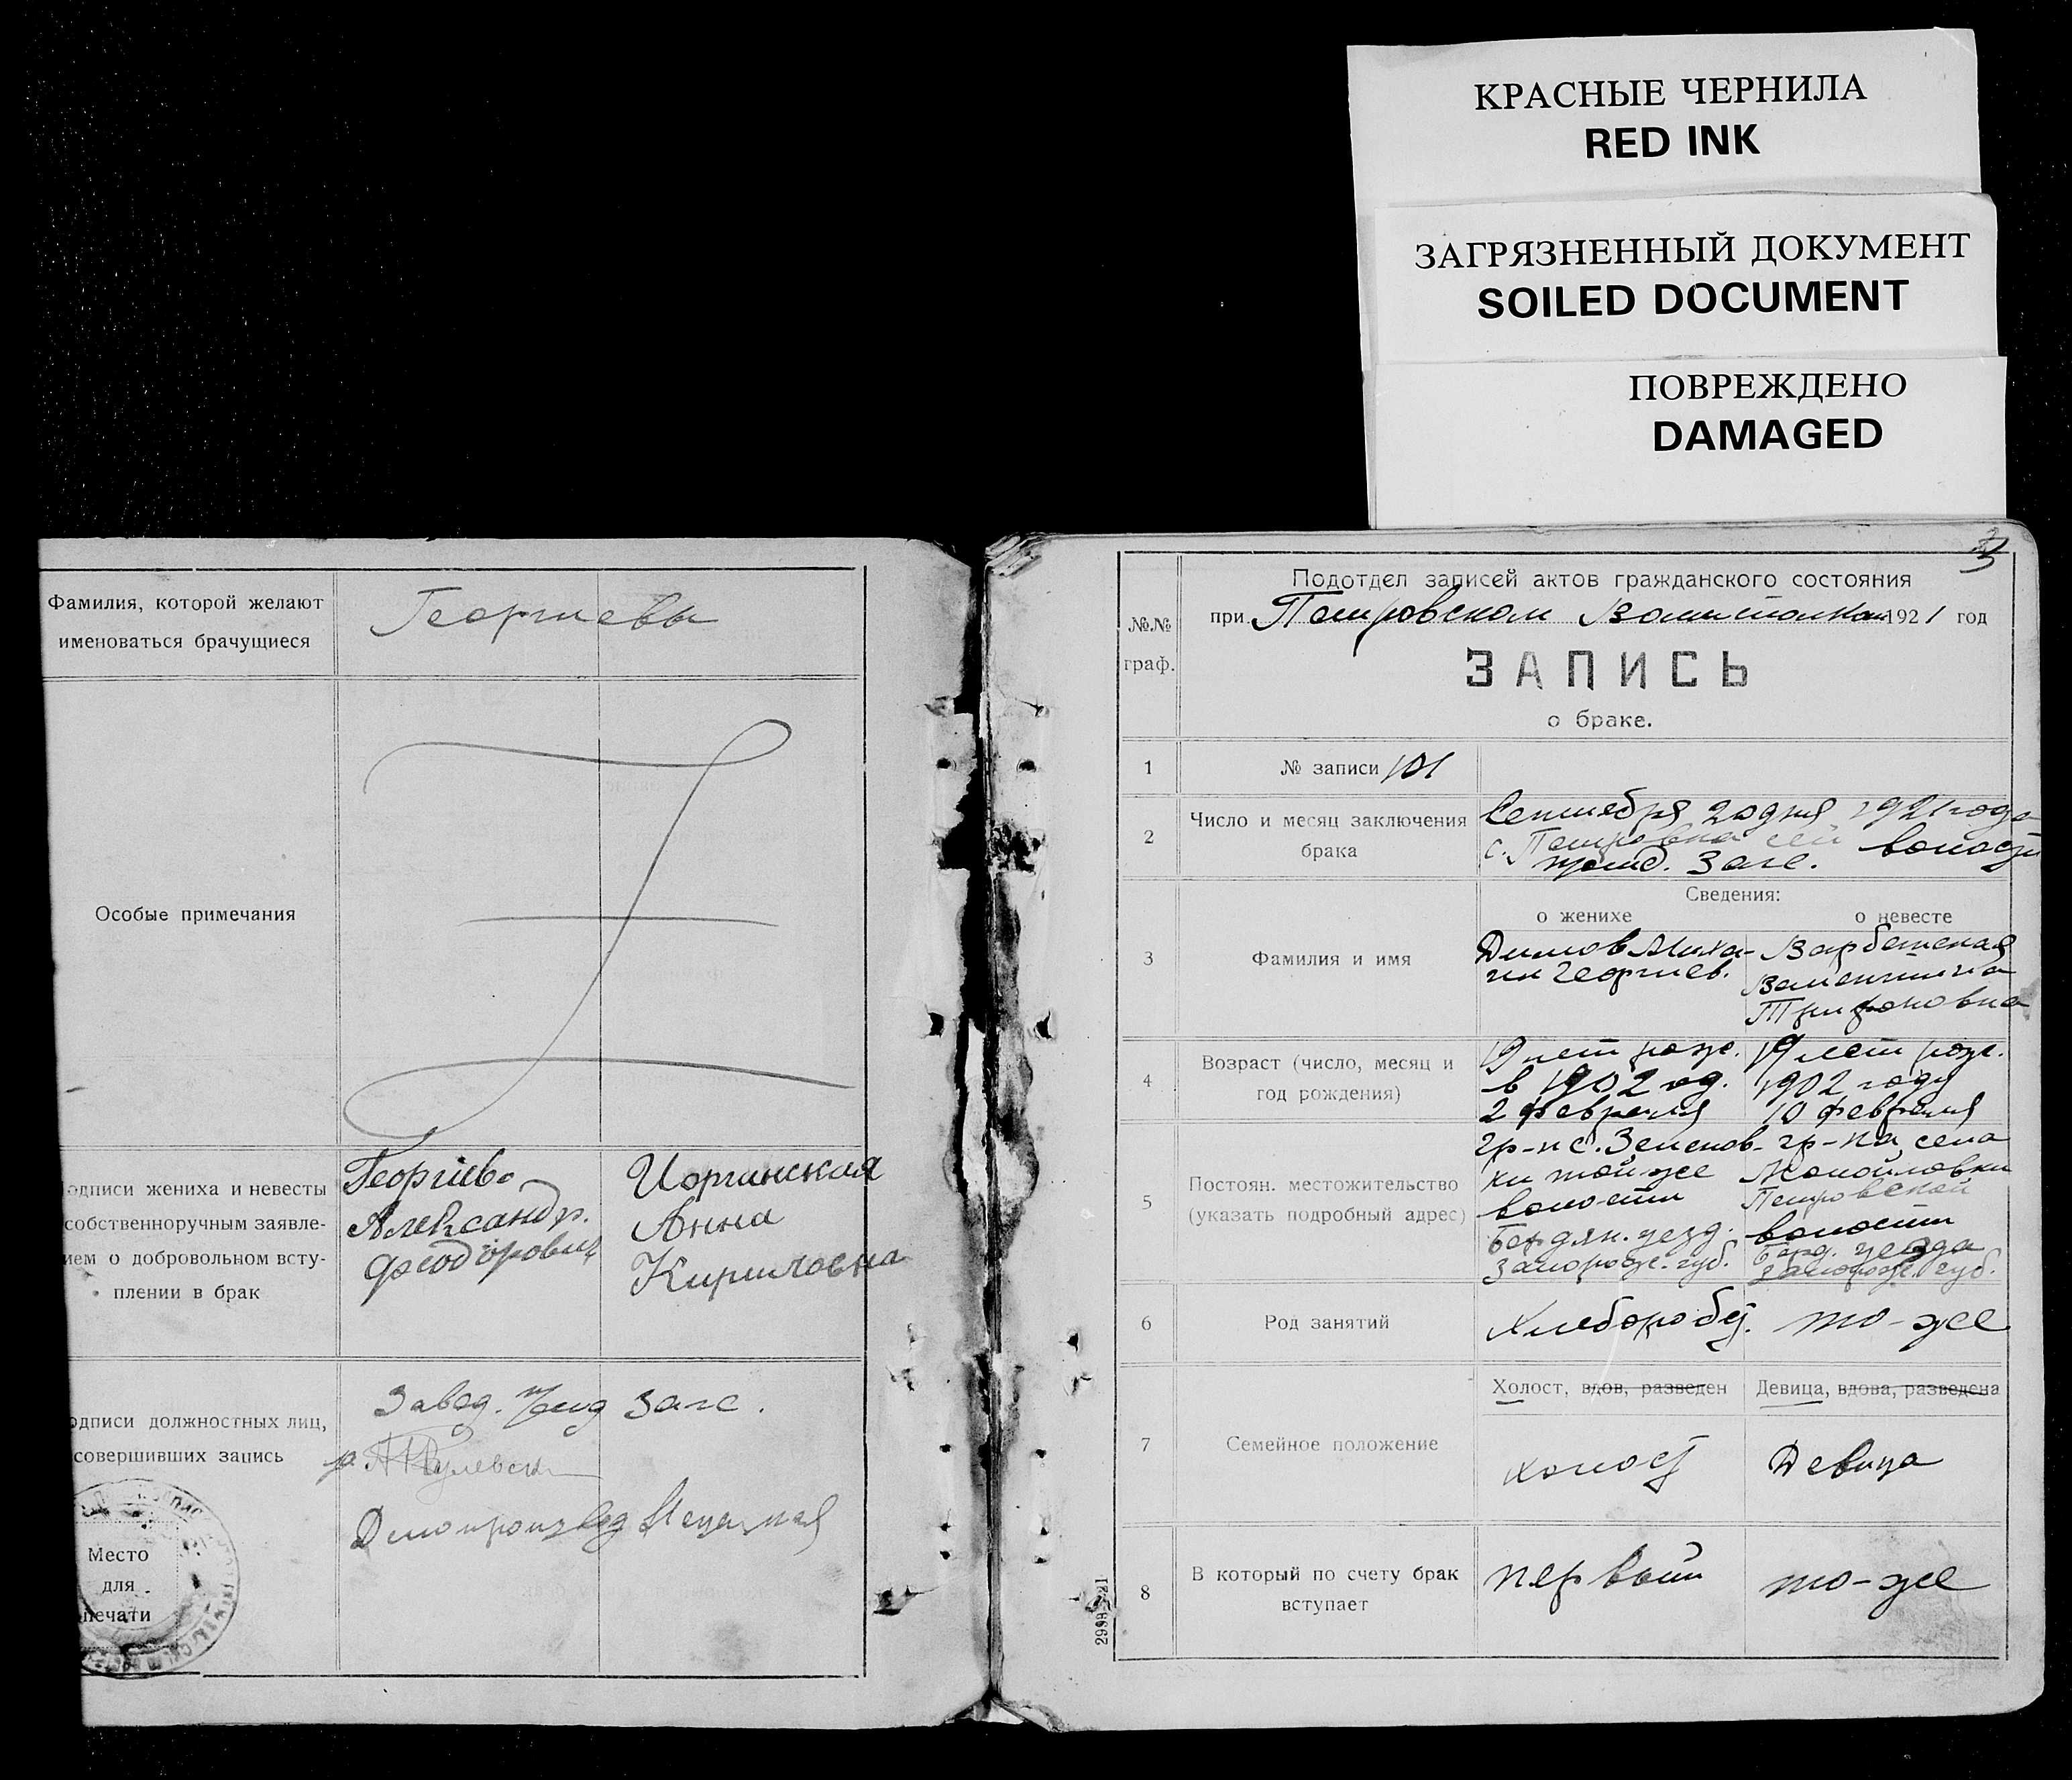 КРАСНЫЕ ЧЕРНИЛА
RED INK
ЗАГРЯЗНЕННЫЙ ДОКУМЕНТ
SOILED DOCUMENT
ПОВРЕЖДЕНО
DAMAGED
Фамилия, которой желают
именоваться брачущиеся
Георгиевы
Особые примечания
одписи жениха и невесты
собственноручным заявле-
ием о добровольном всту-
плении в брак
Георгiев
Александр.
Феодорович
Иорганская
Анна
Кириловна
одписи должностных лиц,
совершивших запись
Завед. загс.
Делопроизвод
Место
для
печати
№№
граф.
Подотдел записей актов гражданского состояния
при Петровском 1921 год
ЗАПИСЬ
о браке.
1
№ записи 101
2
Число и месяц заключения
брака
Сентября 20 дня 1921 года
с. Петровка сей волости
загс.
Сведения:
о женихе
о невесте
3
Фамилия и имя
Димов Миха-
ил Георгиев.
Валентина
Трифоновна
4
Возраст (число, месяц и
год рождения)
19 лет рожд.
в 1902 год.
2 февраля
19 лет рожд.
1902 году
10 февраля
5
Постоян. местожительство
(указать подробный адрес)
гр-н с. Зеленов-
ки той же
волости
Бердян. уезд.
Запорож. губ.
гр-ка села
Манойловки
Петровской
волости
Берд. уезда
Запорож. губ.
6
Род занятий
Хлебороб
то-же
7
Семейное положение
Холост, вдов, разведен
Девица, вдова, разведена
холост
Девица
8
В который по счету брак
вступает
первый
то-же